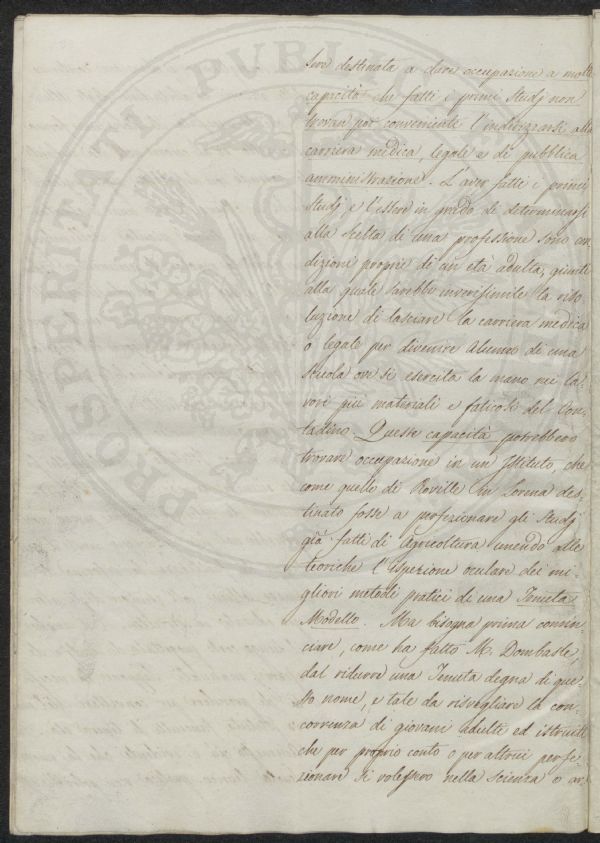 sere destinata a dare occupazione a molte
capacità che fatti i primi Studj non
trovan poi conveniente l'indirizzarsi alla
carriera medica, legale e di pubblica
amministrazione. L'aver fatti i primi
Studj e l'essere in grado di determinarsi
alla scelta di una professione sono con
dizioni proprie di un età adulta, giunti
alla quale sarebbe inverisimile la riso
luzione di lasciare la carriera medica
o legale per divenire alunno di una
Scuola ove si esercita la mano nei la,
vori più materiali e faticosi del Con,
tadino. Queste capacità potrebbero
trovare occupazione in un Istituto, che
come quello di Roville in Lorena des,
tinato fosse a perfezionare gli Studj
già fatti di Agricoltura unendo alle
teoriche l'ispezione oculare dei mi,
gliori metodi pratici di una Tenuta
Modello. Ma bisogna prima comin,
ciare, come ha fatto M. Dombasle,
dal ridurre una Tenuta degna di que,
sto nome, e tale da risvegliare la con,
correnza di giovani adulti ed istruiti
che per proprio conto o per altrui perfe,
zionare si volessero nella scienza o ar,
PROSPERITATI PUBLI